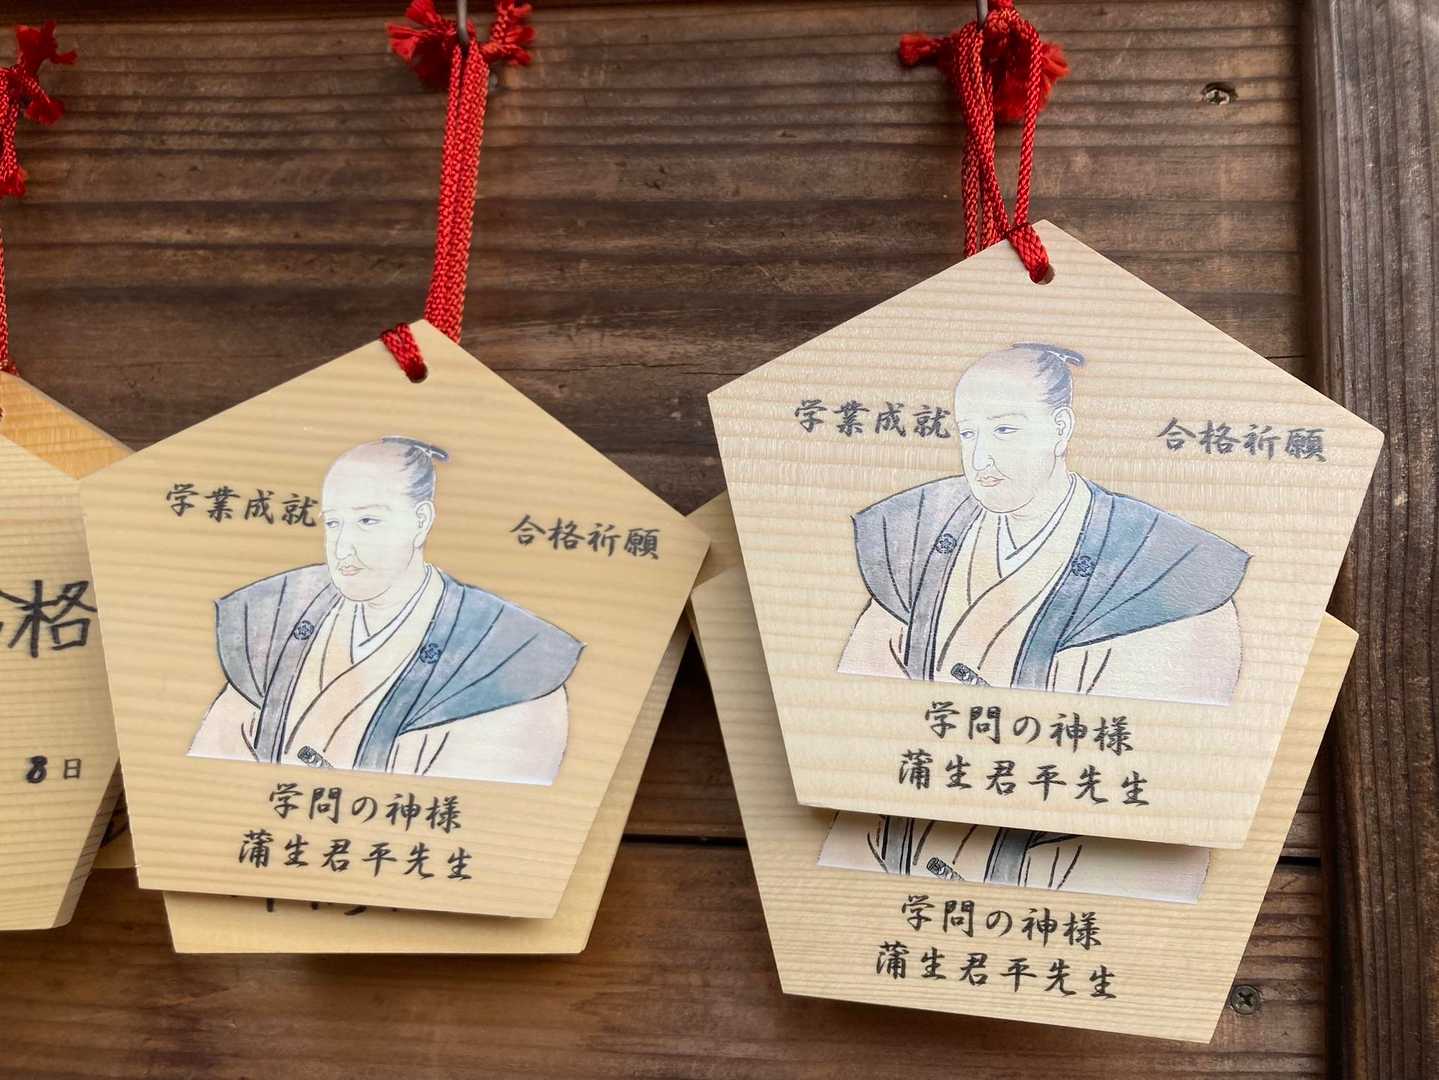 格
8日
学業成就
合格祈願
学問の神様
蒲生君平先生
学業成就
合格祈願
学問の神様
蒲生君平先生
学問の神様
蒲生君平先生